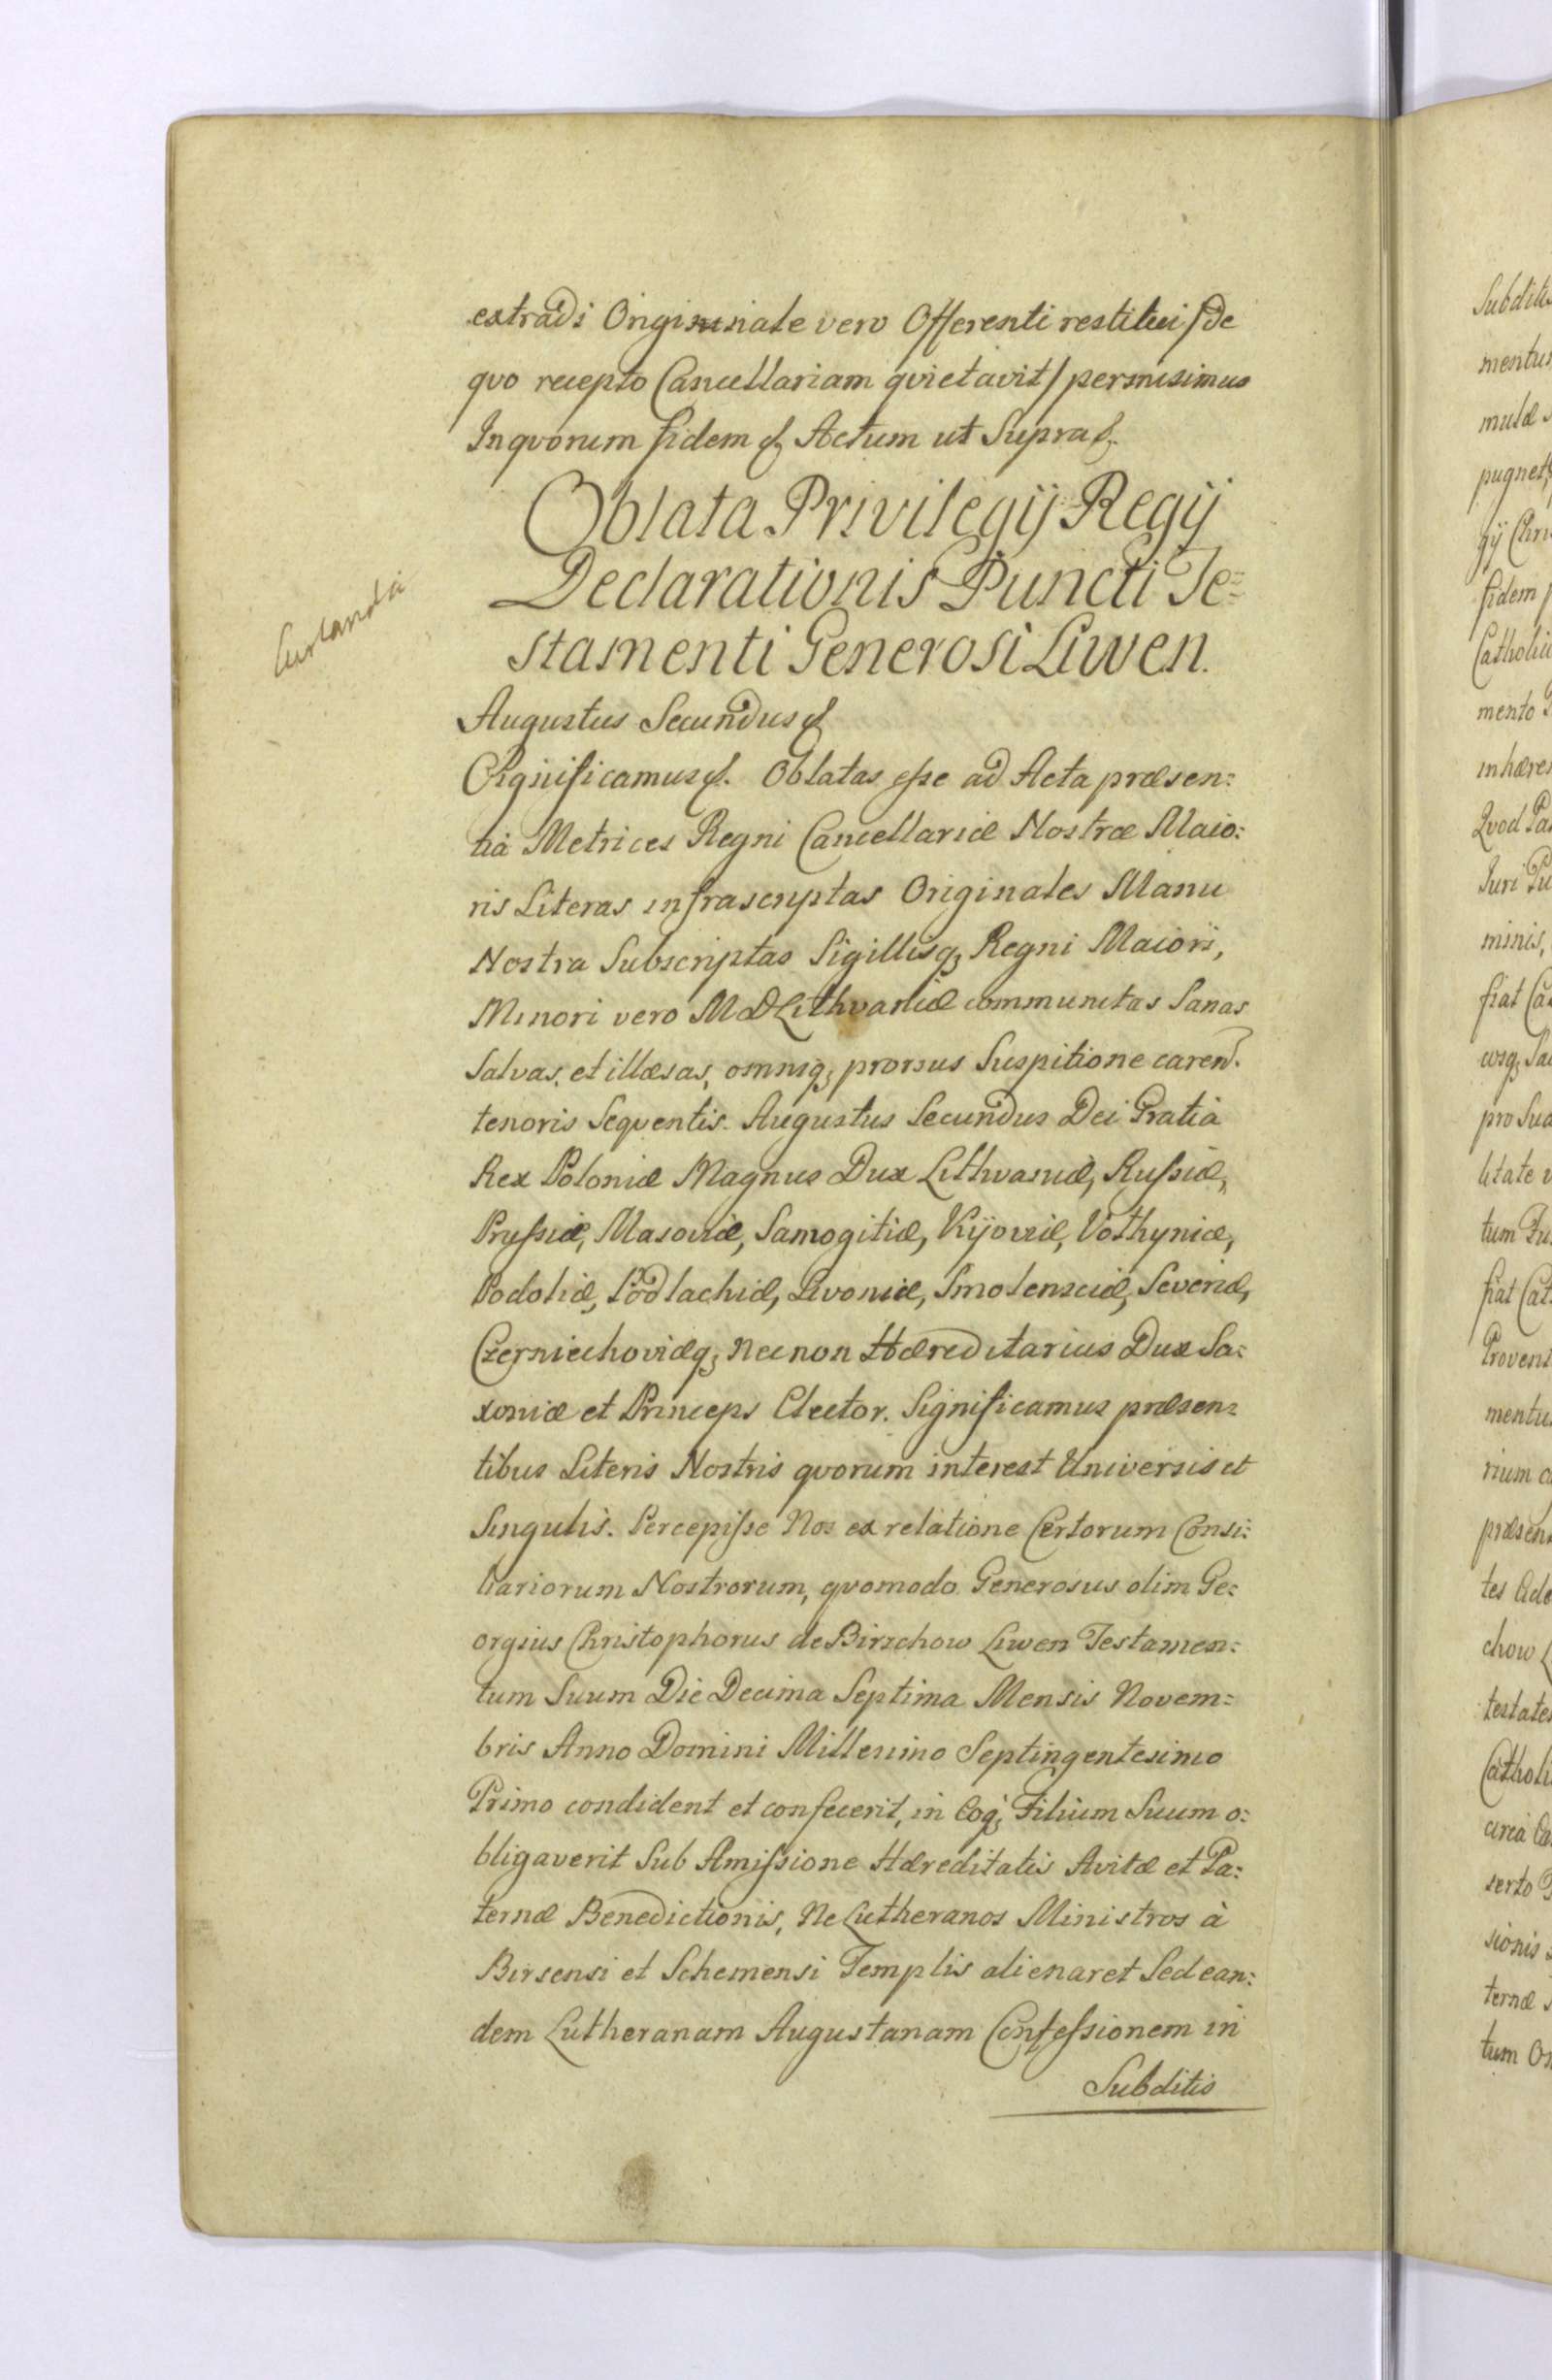 extradi Originale vero Offerenti restitui /de
qvo recepto Cancellariam qvietavit/ permisimus
Inqvorum fidem &c Actum ut Supra &c.
Oblata Privilegÿ Regÿ
Declarationis Puncti Te=
stamenti Generosi Liwen.
Curlandia
Augustus Secundus &c
Significamus &c. Oblatas esse ad Acta præsen:
tia Metrices Regni Cancellariæ Nostræ Maio:
ris Literas infrascriptas Originales Manu
Nostra Subscriptas Sigillisq; Regni Maiori,
Minori vero M D Lithvaniæ communitas Sanas
Salvas, et illæsas, omniq; prorsus Suspitione caren.
tenoris Seqventis. Augustus Secundus Dei Gratia
Rex Poloniæ Magnus Dux Lithvaniæ, Russiæ,
Prussiæ, Masoviæ, Samogitiæ, Kijoviæ, Volhyniæ,
Podoliæ, Podlachiæ, Livoniæ, Smolensciæ, Severiæ,
Czerniechoviæq; Necnon Hæreditarius Dux Sa:
xoniæ et Princeps Elector. Significamus præsen:
tibus Literis Nostris qvorum interest Universis et
Singulis. Percepisse Nos ex relatione Certorum Consi:
liariorum Nostrorum, qvomodo Generosus olim Ge:
orgius Christophorus de Birzchow Liwen Testamen:
tum Suum Die Decima Septima Mensis Novem=
bris Anno Domini Millesimo Septingentesimo
Primo condiderit et confecerit, in Eoq; Filium Suum o:
bligaverit Sub Amissione Hæreditatis Avitæ et Pa:
ternæ Benedictionis, Ne Lutheranos Ministros à
Birsensi et Schemensi Templis alienaret Sed ean:
dem Lutheranam Augustanam Confessionem in
Subditis